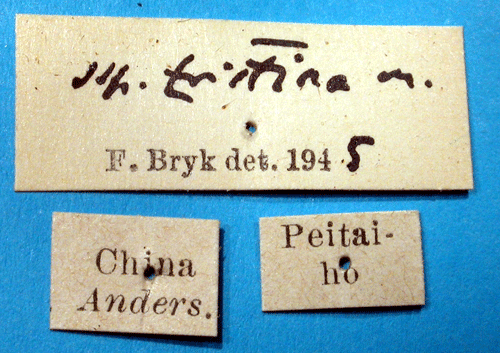 tristina m.
F. Bryk det. 1945
China
Anders.
Peitai-
ho